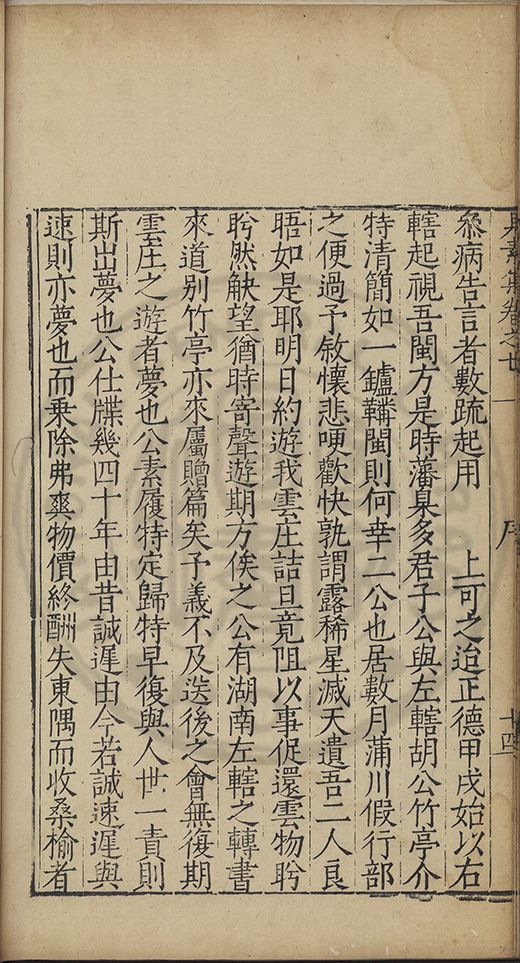 叅病告言者數疏起用　上可之迨正德甲戌始以右
轄起視吾閩方是時藩臬多君子公與左轄胡公竹亭介
特清簡如一鑪鞲閩則何幸二公也居數月蒲川假行部
之便過予敘懷悲哽歡快孰謂露稀星滅天遺吾二人良
晤如是耶明日約遊我雲庄詰旦竟阻以事促還雲物盻
盻然觖望猶時寄聲遊期方俟之公有湖南左轄之轉書
來道別竹亭亦來屬贈篇矣予義不及送後之會無復期
雲庄之遊者夢也公素履特定歸特早復與人世一責則
斯出夢也公仕牒幾四十年由昔誠遲由今若誠速遲與
速則亦夢也而乗除弗爽物價終酬失東隅而收桑榆者
卷之廿
序
十四